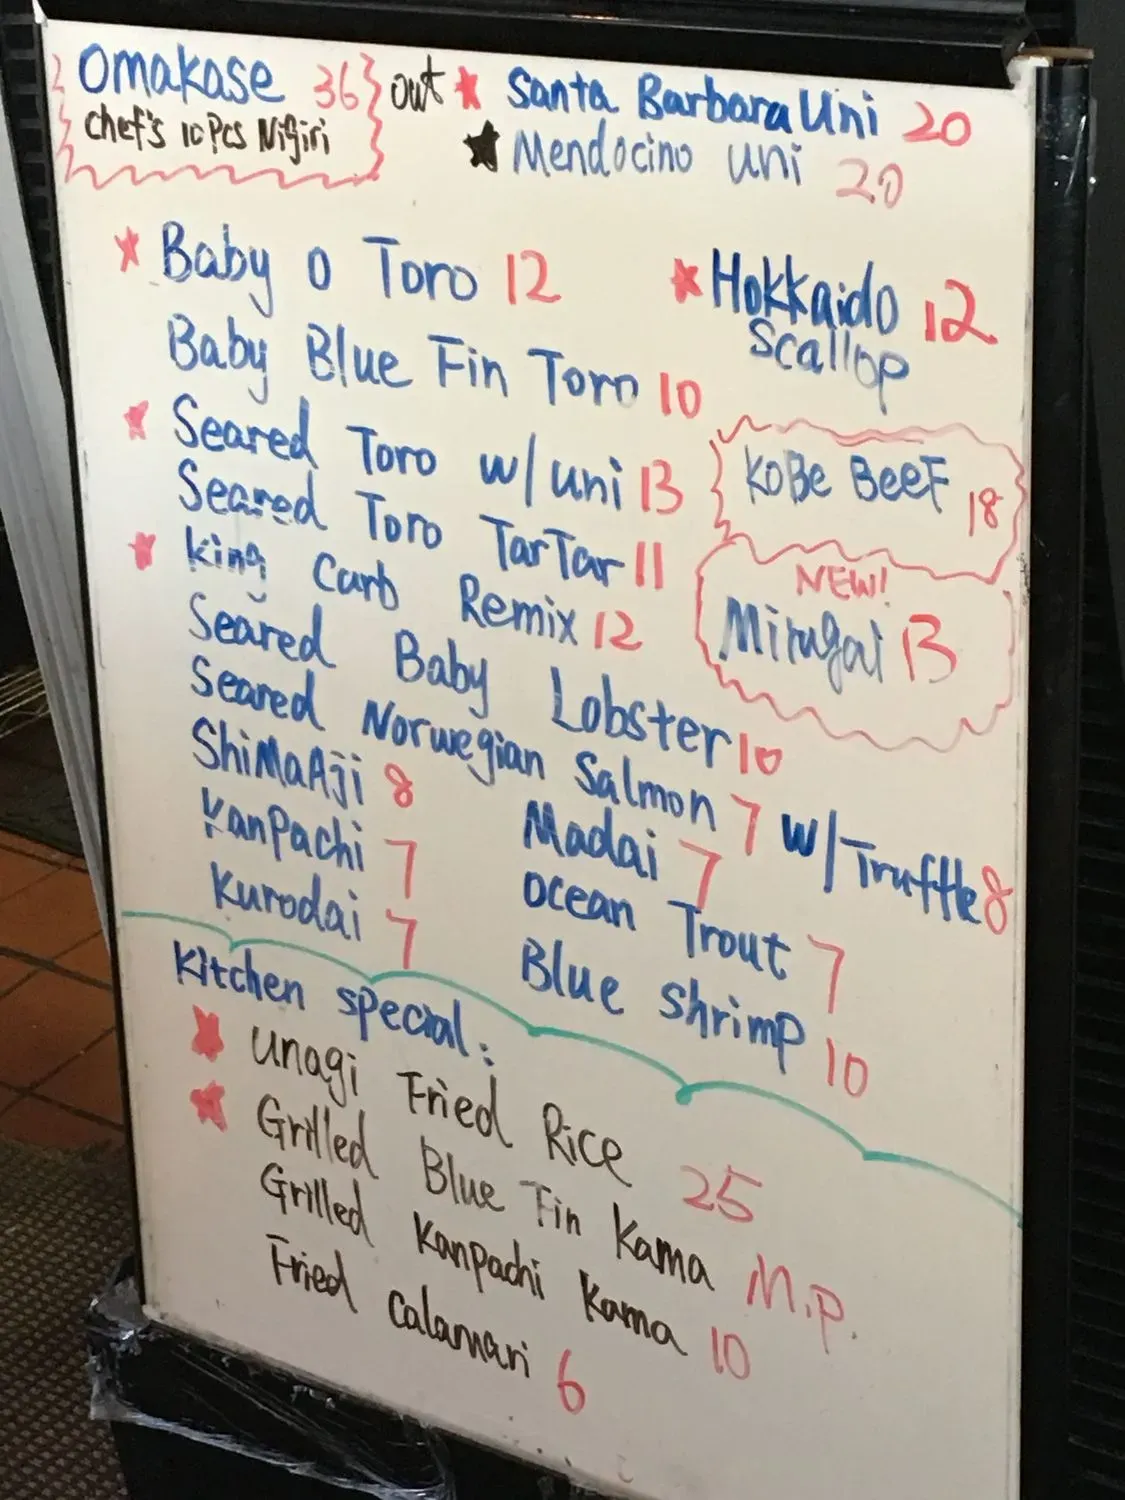 Omakase 36 out ★ Santa Barbara Uni 20
chef's 10 Pcs Nigiri ★ Mendocino uni 20
★ Baby o Toro 12
★ Hokkaido 12
Scallop
Baby Blue Fin Toro 10
★ Seared Toro w/ uni 13
KoBe BeeF 18
Seared Toro TarTar 11
NEW!
Mirugai 13
★ King Carb Remix 12
Seared Baby Lobster 10
Seared Norwegian Salmon 7 w/ Truffle 8
ShiMaAji 8
Madai 7
Kanpachi 7
Ocean Trout 7
Kurodai 7
Blue shrimp 10
Kitchen special:
★ Unagi Fried Rice 25
★ Grilled Blue Fin Kama M.p.
Grilled Kanpachi Kama 10
Fried calamari 6